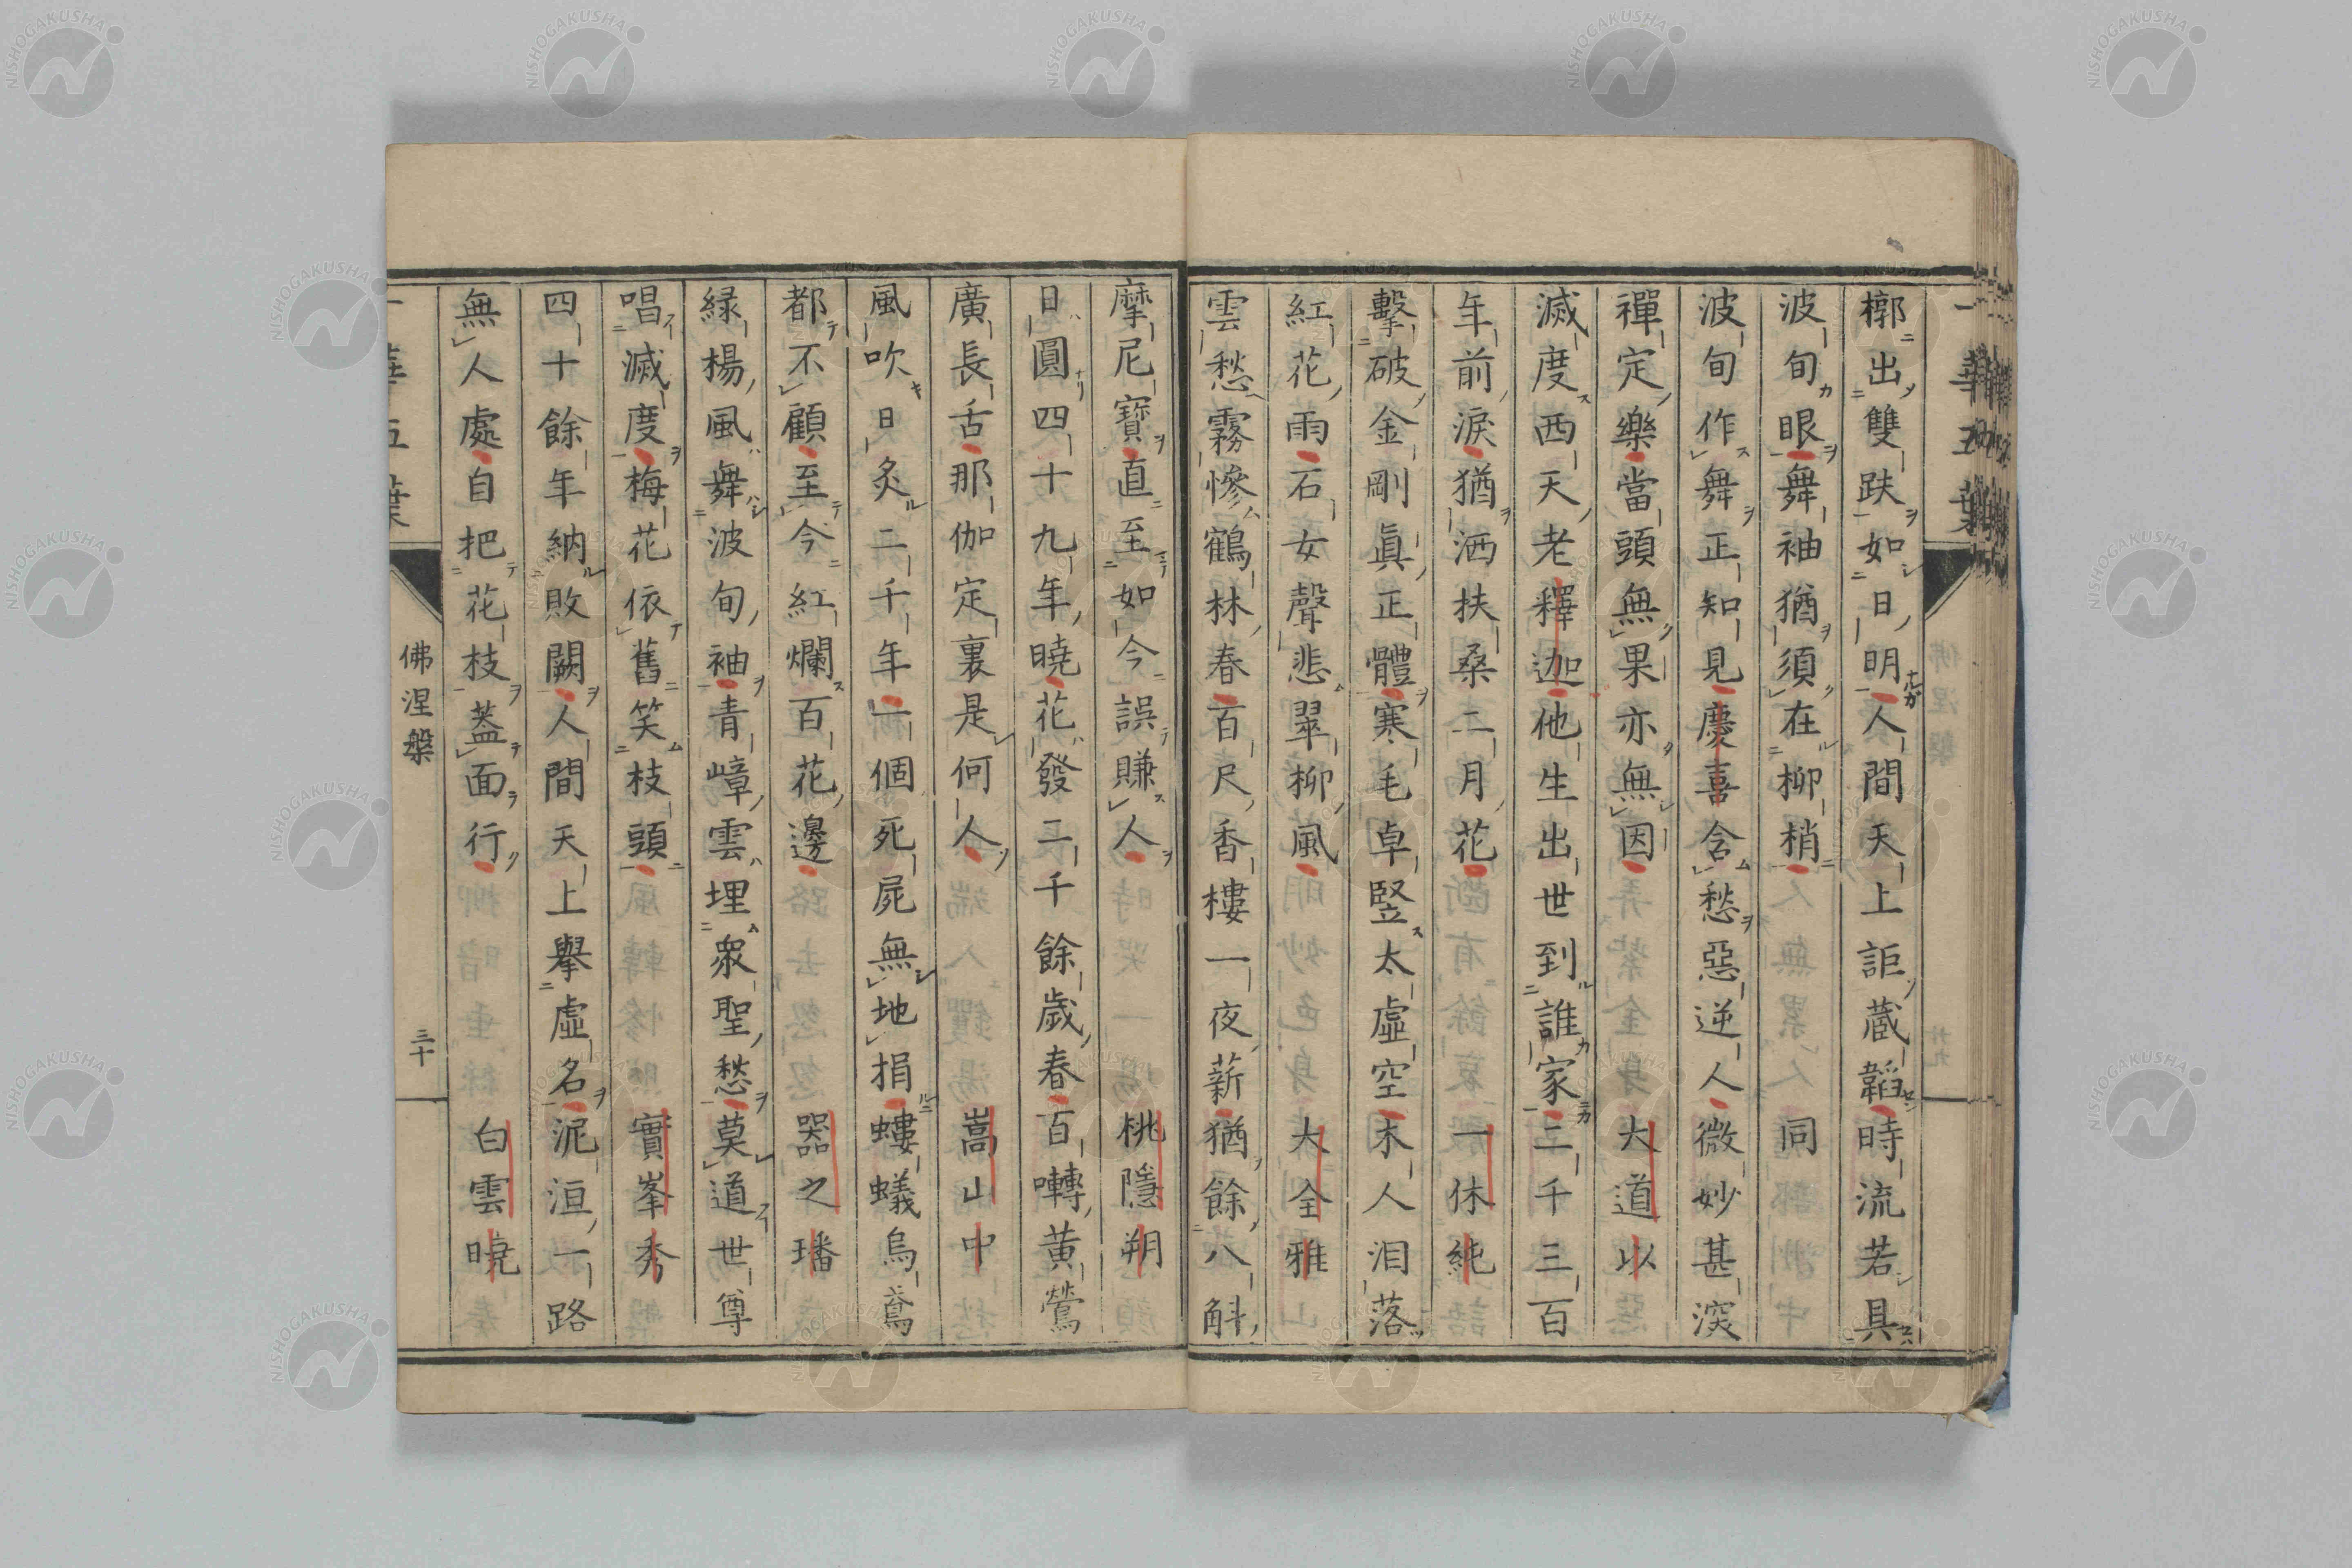 一華五葉
槨出雙趺如日明人間天上詎蔵韜時流若具
波旬眼舞袖猶須在柳梢　同
波旬作舞正知見慶喜含愁惡逆人微妙甚深
禪定樂當頭無果亦無因　大道以
滅度西天老釋迦他生出世到誰家二千三百
年前淚猶洒扶桑二月花　一休純
擊破金剛眞正體寒毛卓竪太虛空木人泪落
紅花雨石女聲悲翠柳風　大全雅
雲愁霧慘鶴林春百尺香樓一夜薪猶餘八斛
摩尼寶直至如今誤賺人　桃隱朔
日圓四十九年曉花發二千餘歲春百囀黄鶯
廣長舌那伽定裏是何人　嵩山中
風吹日炙二千年一個死屍無地捐螻蟻烏鳶
都不顧至今紅爛百花邊　器之璠
緑楊風舞波旬袖青嶂雲埋衆聖愁莫道世尊
唱滅度梅花依舊笑枝頭　實峯秀
四十餘年納敗闕人間天上擧虛名泥洹一路
無人處自把花枝蓋面行　白雲曉
一華五葉
佛涅槃
三十